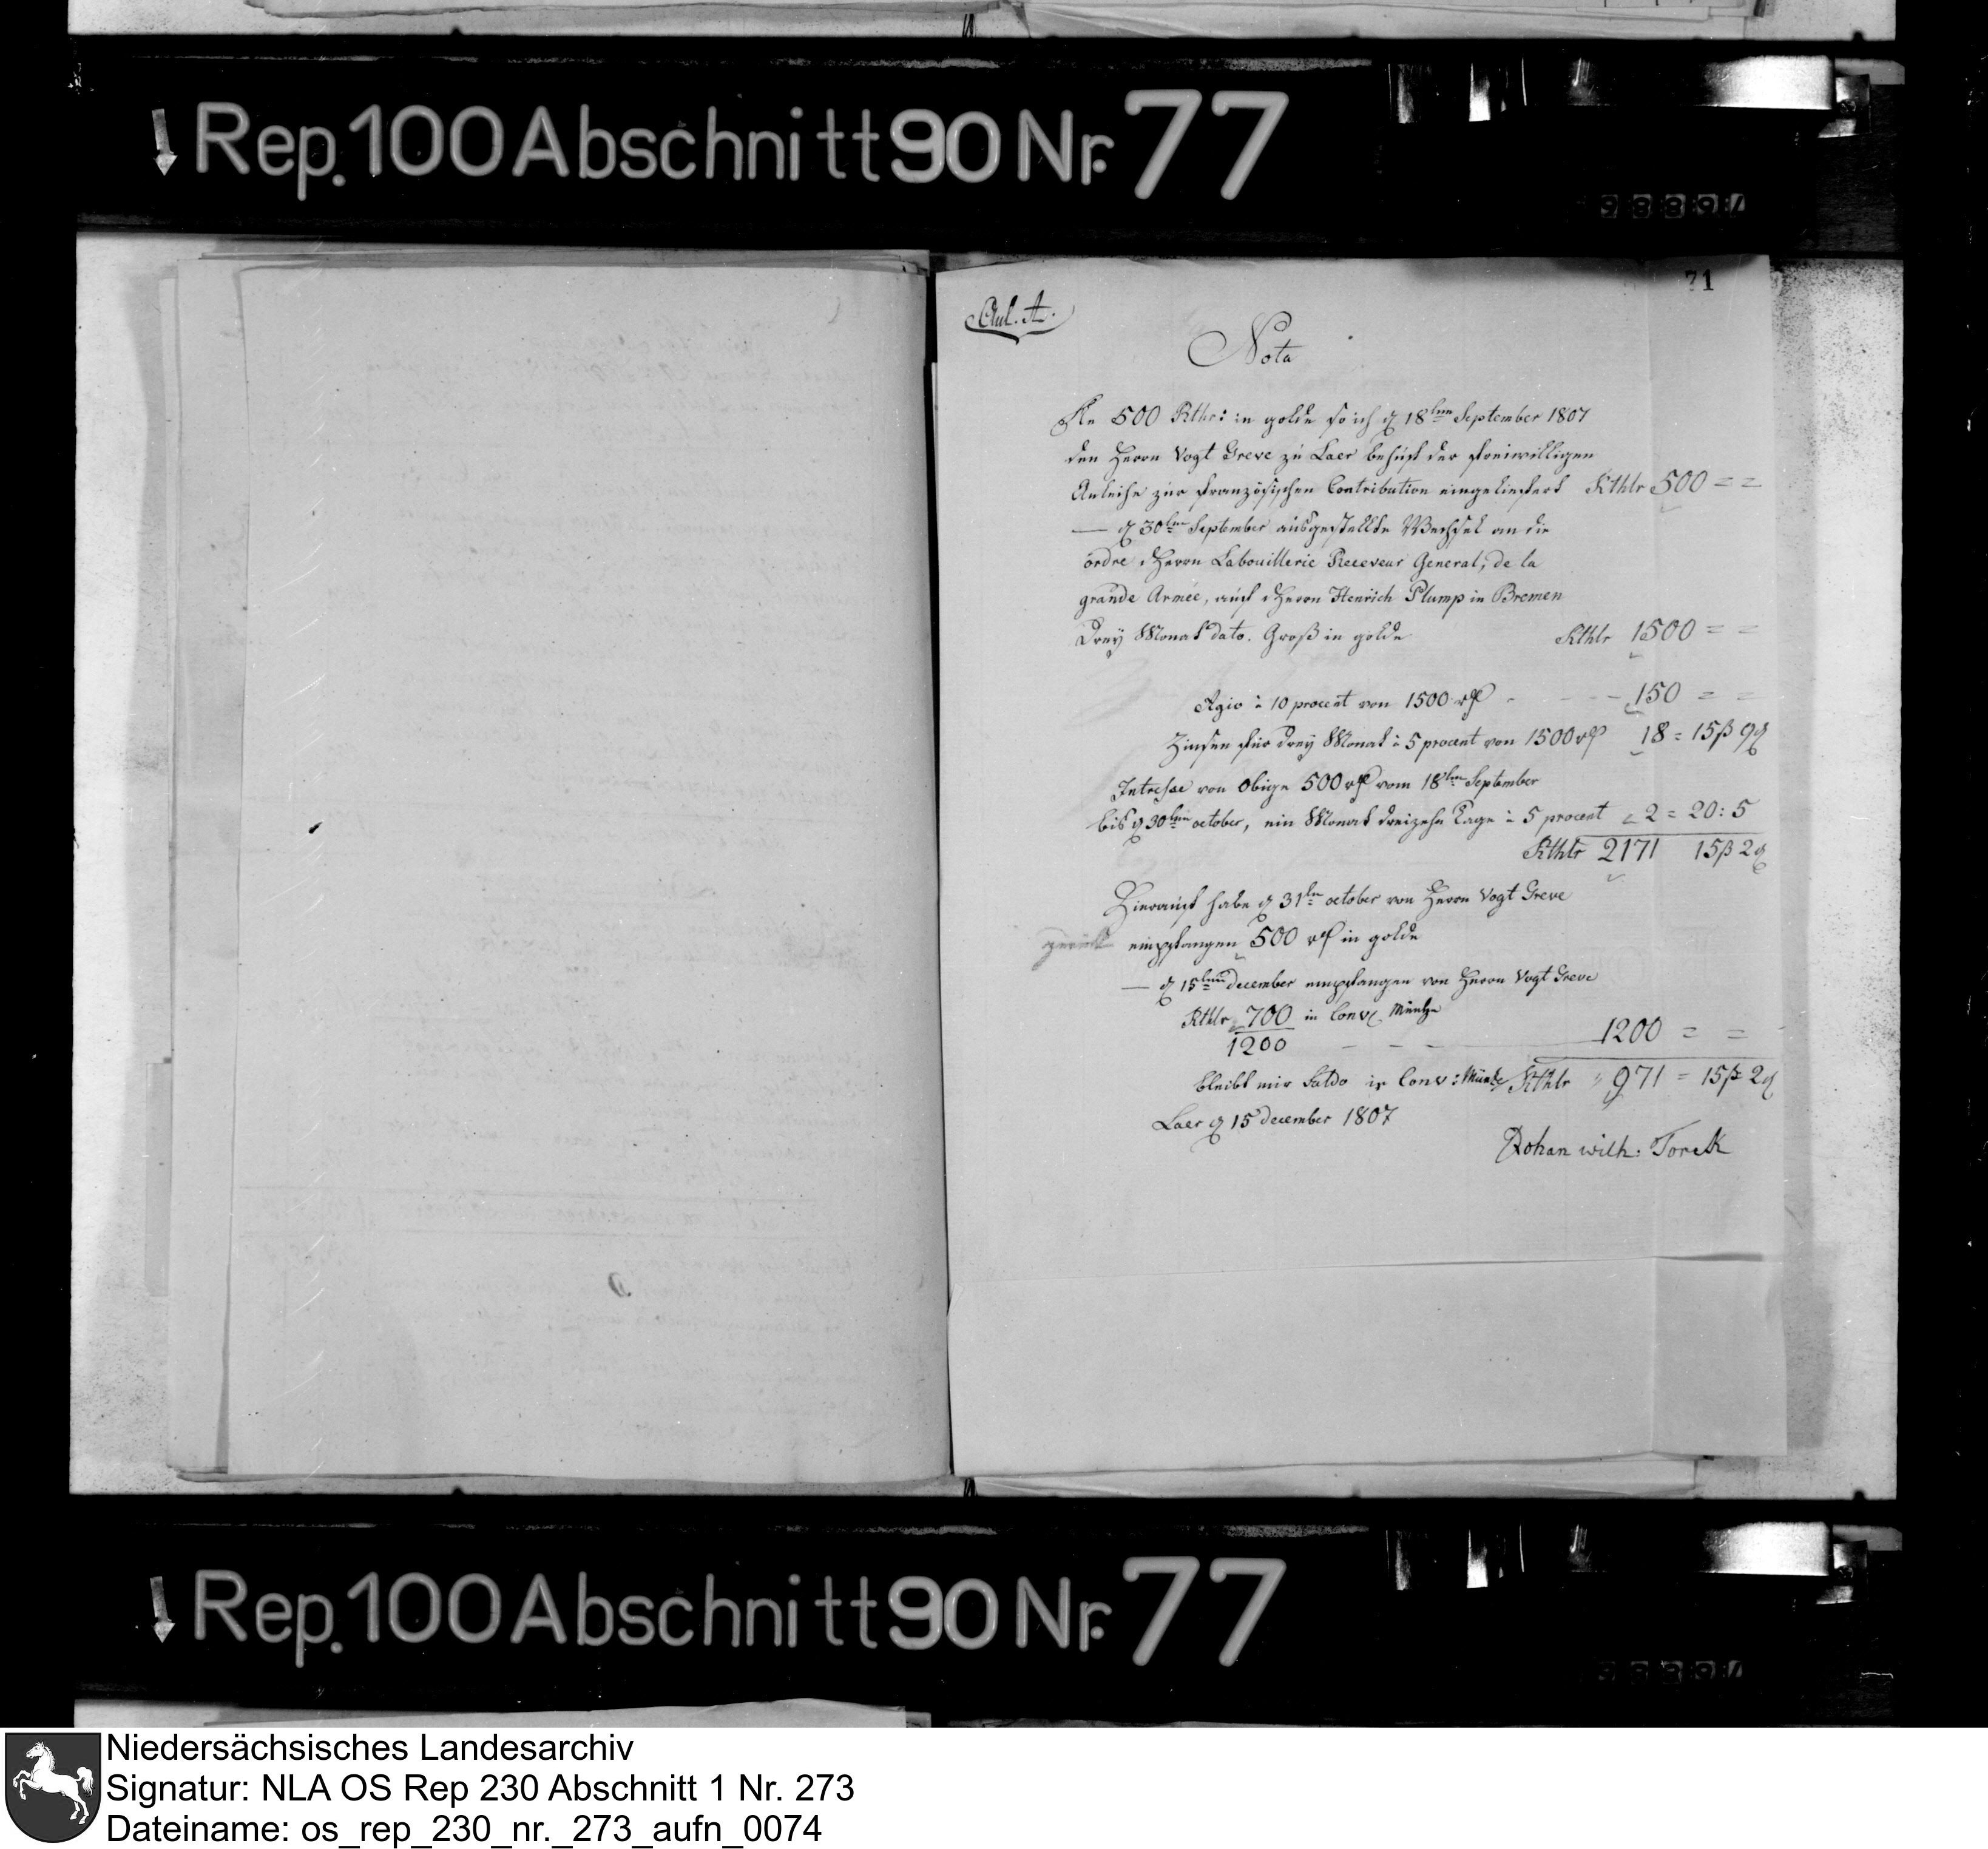 Rep. 100 Abschnitt 90 Nr. 77
71
Anl. A.
Nota
An 500 Rthr: in golde so ich d 18ten September 1807
den Herrn Vogt Greve zu Laer behuf der freiwilligen
Anleihe zur französischen Contribution eingeliefert Rthlr 500 = =
— d 30ten September ausgestellte Wechsel an die
ordre Herrn Labouillerie Receveur General, de la
grande Armée, auf Herrn Henrich Plump in Bremen
Drey Monat dato. Groß in golde Rthlr 1500 = =
Agio à 10 procent von 1500 rth - - - - 150 = =
Zinsen für drey Monat à 5 procent von 1500 rth 18 = 15ß 9d
Intresse von Obige 500 rth vom 18ten September
bis d 30ten october, ein Monat dreizehn Tage à 5 procent 2 = 20 : 5
Rthlr 2171 15ß 2d
Hierauf habe d 31te october von Herrn Vogt Greve
zurück empfangen 500 rth in golde
— d 15ten december empfangen von Herrn Vogt Greve
Rthlr 700 in Conv. Müntze
1200 - - - 1200 = =
bleibt mir Saldo in Conv: Müntze Rthlr 971 = 15ß 2d
Laer d 15 december 1807
Johan wilh: Torck
Rep. 100 Abschnitt 90 Nr. 77
Niedersächsisches Landesarchiv
Signatur: NLA OS Rep 230 Abschnitt 1 Nr. 273
Dateiname: os_rep_230_nr._273_aufn_0074